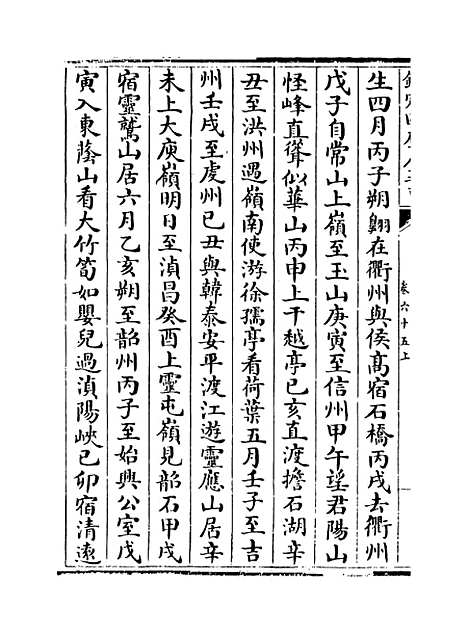 生四月丙子朔翱在衢州與侯高宿石橋丙戌去衢州
戊子自常山上嶺至玉山庚寅至信州甲午望君陽山
怪峰直聳似華山丙申上干越亭已亥直渡擔石湖辛
丑至洪州遇嶺南使游徐孺亭看荷葉五月壬子至吉
州壬戌至虔州已丑與韓泰安平渡江遊靈應山居辛
未上大庾嶺明日至湞昌癸酉上靈屯嶺見韶石甲戌
宿靈鷲山居六月乙亥朔至韶州丙子至始興公室戊
寅入東蔭山看大竹筍如嬰兒過湞陽峽已卯宿清遠
卷六十五上